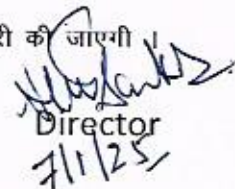 री की जाएगी ।
Director
7/1/25